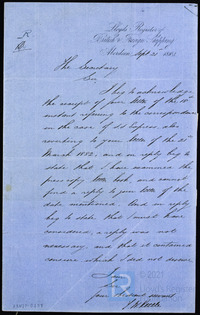 Lloyd's Register of
British & Foreign Shipping
Aberdeen Sept. 21st 1882
The Secretary
Sir
I beg to acknowledge
the receipt of your letter of the 18th
instant referring to the correspondence
in the case of SS
reverting to your letter of the 21st
March 1882, and in reply beg
to state that I have examined the
press copy letter book, and cannot
find a reply to your letter of the
date mentioned. And in reply
beg to state that I must have
considered, a reply was not
necessary, and that it contained
censure which I did not deserve
I am
Sir
Your obedient servant
© 2021